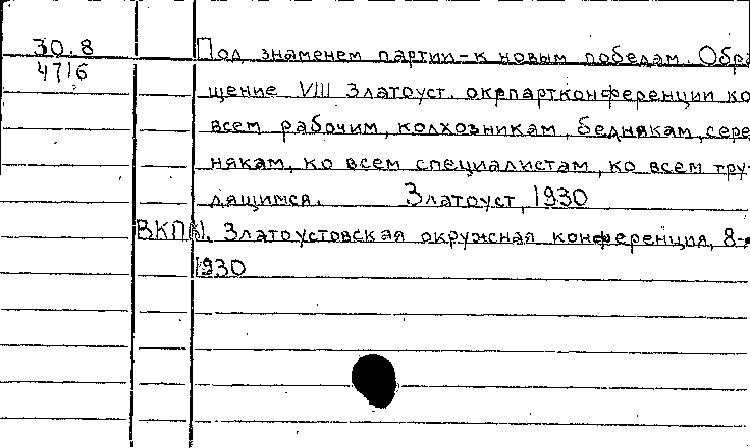 30.8 Под знаменем партии – к новым победам. Обра
4716
щение VIII Златоуст. окрпартконференции ко
всем рабочим, колхозникам, беднякам, серед
някам, ко всем специалистам, ко всем тру-
дящимся. Златоуст, 1930
ВКП/б/. Златоустовская окружная конференция, 8-я
1930